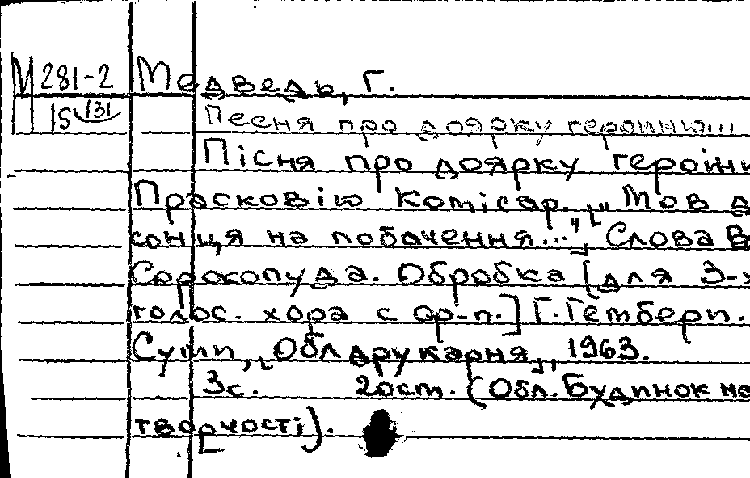 М 281-2 Медведь, Г.
15 131 Песня про доярку героиню...
Пісня про доярку героїн
Прасковію Комісар. [„Мов д
сонця на побачення..."] Слова В
Сорокопуда. Обробка [для 3-х
голос. хора с ор-п.] Г. Гемберп.
Суми, „Облдрукарня„, 1963.
3с. 20см. (Обл. Будинок на
творчості].